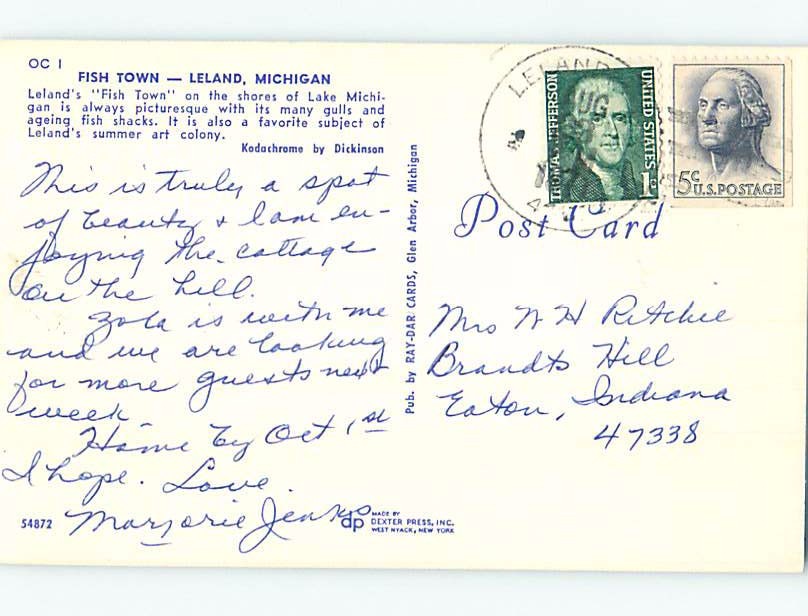 OC 1
FISH TOWN — LELAND, MICHIGAN
Leland's "Fish Town" on the shores of Lake Michi-
gan is always picturesque with its many gulls and
ageing fish shacks. It is also a favorite subject of
Leland's summer art colony.
Kodachrome by Dickinson
This is truly a spot
of beauty & I am en-
joying the cottage
on the hill.
Zola is with me
and we are looking
for more guests next
week
Home by Oct 1st
I hope. Love.
Marjorie Jenkps
54872
dp MADE BY
DEXTER PRESS, INC.
WEST NYACK, NEW YORK
Pub. by RAY-DAR CARDS, Glen Arbor, Michigan
LELAND
AUG
THOMAS JEFFERSON
UNITED STATES
1c
5c
U.S. POSTAGE
Post Card
Mrs W H Ritchie
Brandts Hill
Eaton, Indiana
47338